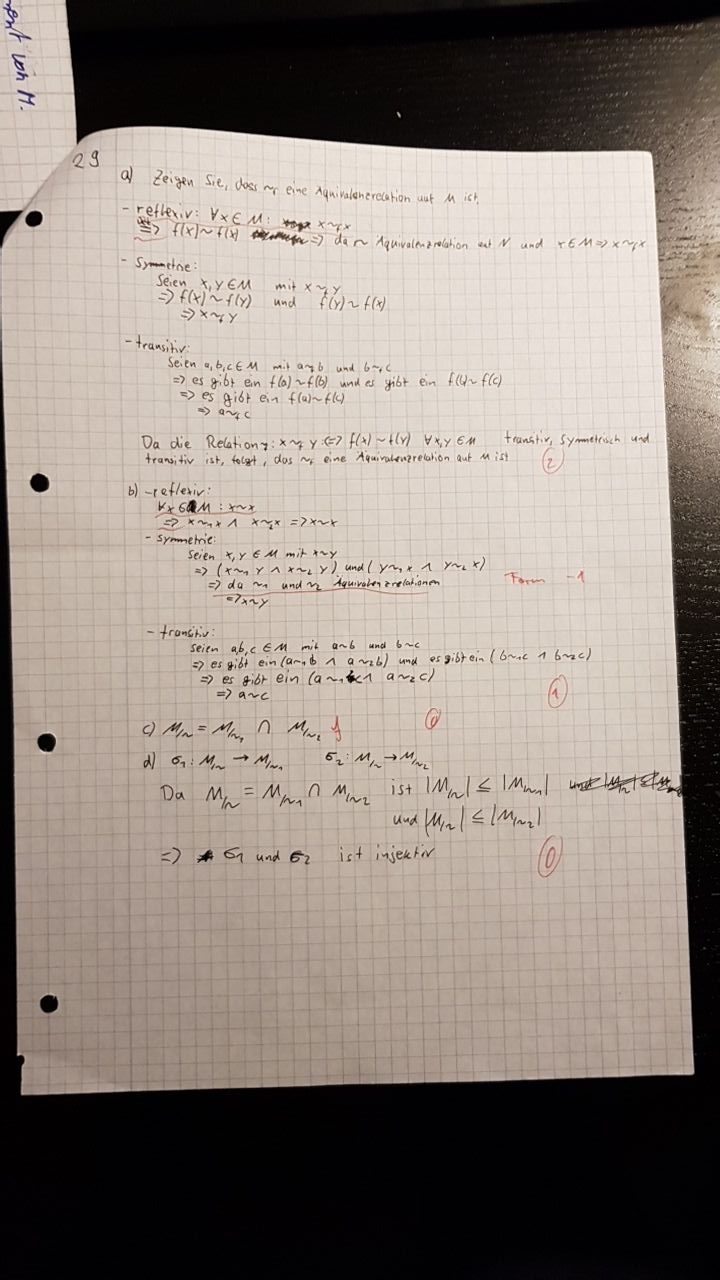 von M.
29
a) Zeigen Sie, dass ~f eine Äquivalenzrelation auf M ist,
- reflexiv: ∀x∈M: x~f x
=> f(x)~f(x) => da ~ Äquivalenzrelation auf N und x∈M => x~f x
- Symmetrie:
Seien x,y∈M mit x~f y
=> f(x)~f(y) und f(y)~f(x)
=> x~f y
- transitiv:
Seien a,b,c∈M mit a~f b und b~f c
=> es gibt ein f(a)~f(b) und es gibt ein f(b)~f(c)
=> es gibt ein f(a)~f(c)
=> a~f c
Da die Relation : x~f y :<=> f(x)~f(y) ∀x,y∈M transitiv, symmetrisch und
transitiv ist, folgt, das ~f eine Äquivalenzrelation auf M ist 2
b) - reflexiv:
∀x∈M : x~x
=> x~1 x ∧ x~2 x => x~x
- Symmetrie:
Seien x,y∈M mit x~y
=> (x~1 y ∧ x~2 y) und (y~1 x ∧ y~2 x)
=> da ~1 und ~2 Äquivalenzrelationen Form -1
=> x~y
- transitiv:
Seien a,b,c∈M mit a~b und b~c
=> es gibt ein (a~1 b ∧ a~2 b) und es gibt ein (b~1 c ∧ b~2 c)
=> es gibt ein (a~1 c ∧ a~2 c) 1
=> a~c
c) M/~ = M/~1 ∩ M/~2 f 0
d) σ1: M/~ → M/~1 σ2: M/~ → M/~2
Da M/~ = M/~1 ∩ M/~2 ist |M/~| ≤ |M/~1|
und |M/~| ≤ |M/~2|
=> σ1 und σ2 ist injektiv 0